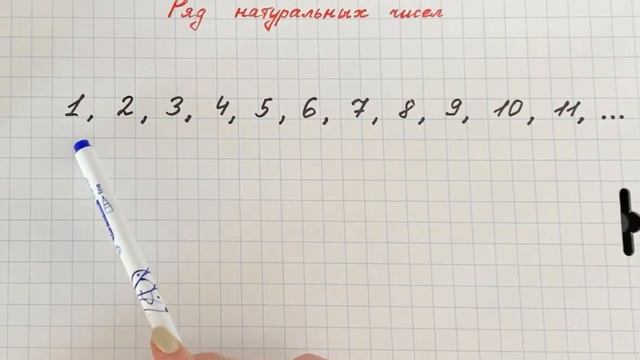 Ряд натуральных чисел
1, 2, 3, 4, 5, 6, 7, 8, 9, 10, 11, ...